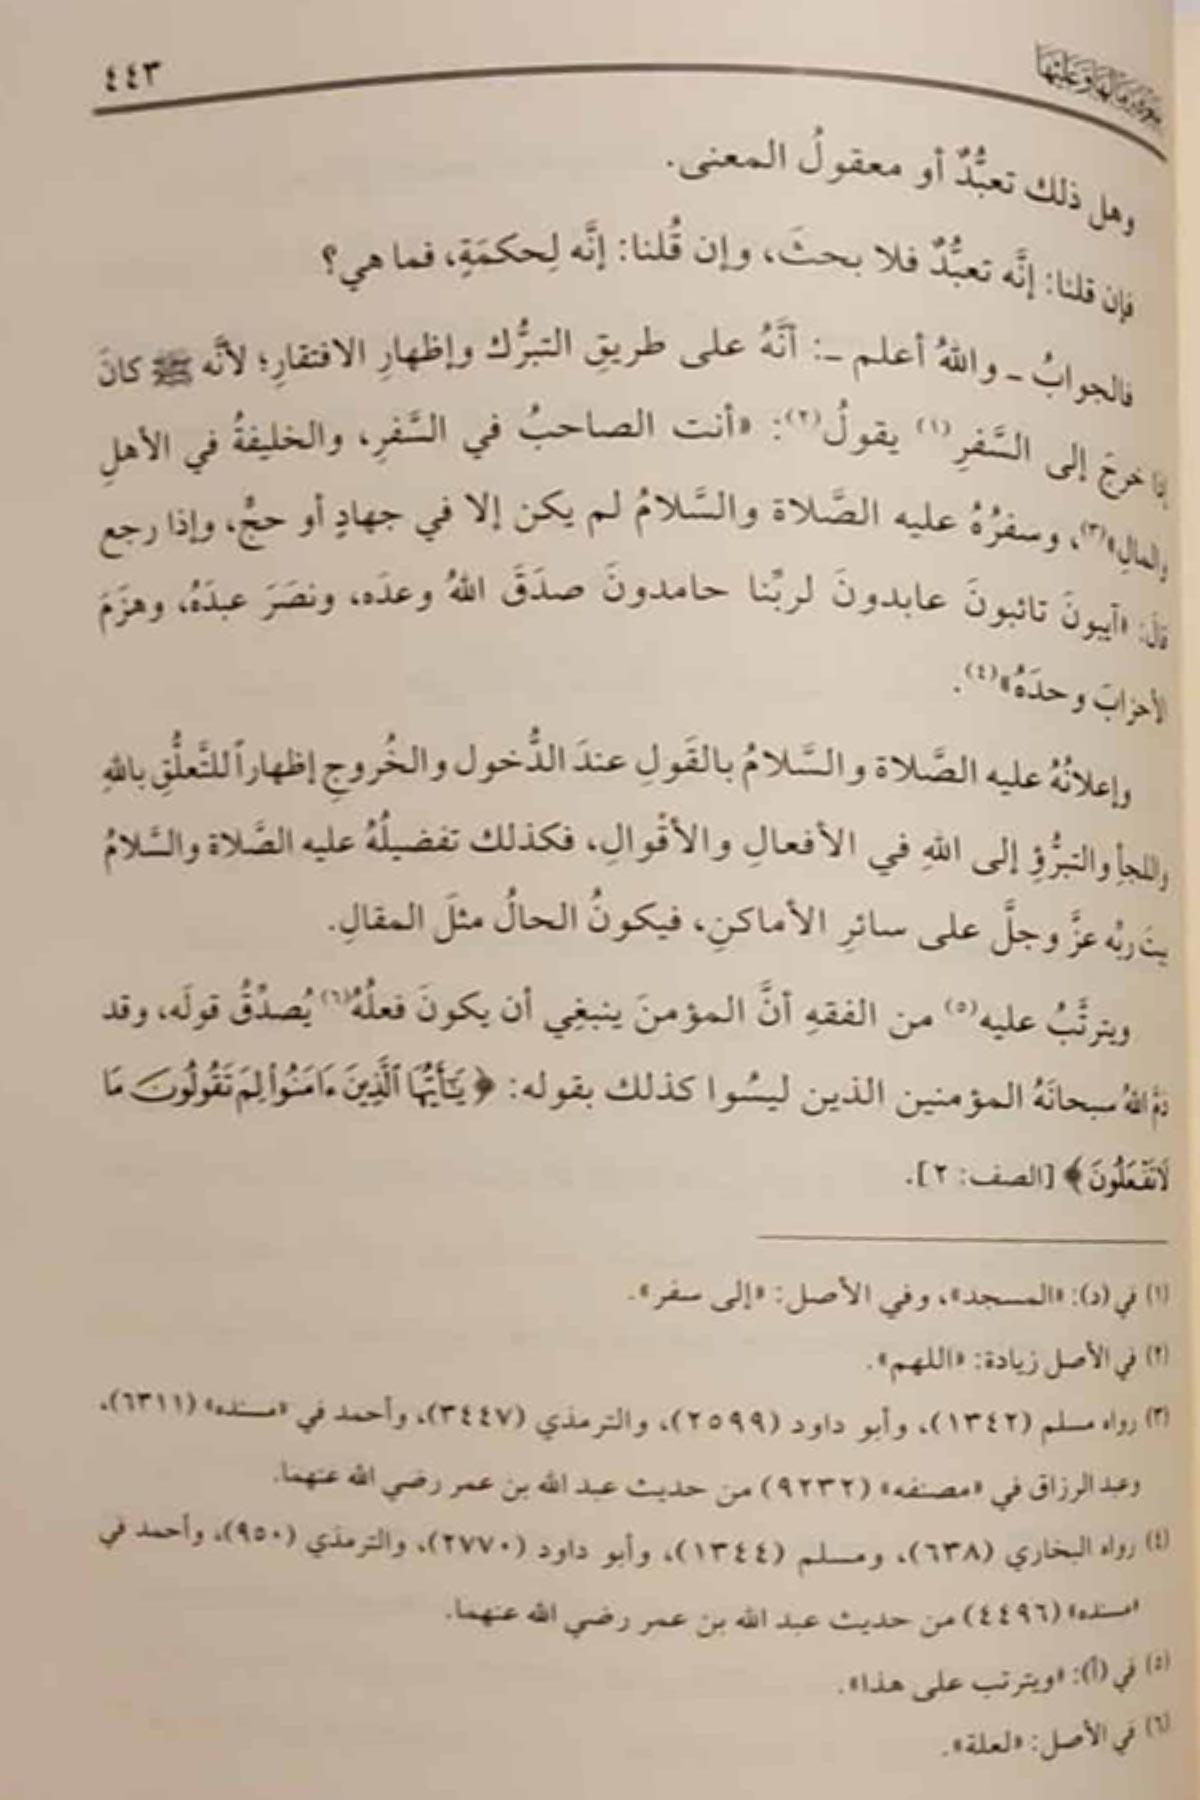 ٤٤٣
وهل ذلك تعبُّدٌ أو معقولُ المعنى.
فإن قلنا: إنَّه تعبُّدٌ فلا بحثَ، وإن قُلنا: إنَّه لِحكمَةٍ، فما هي؟
فالجوابُ ـ واللهُ أعلم ـ: أنَّهُ على طريقِ التبرُّك وإظهارِ الافتقارِ؛ لأنَّه ﷺ كانَ
إذا خرجَ إلى السَّفرِ(١) يقولُ(٢): «أنت الصاحبُ في السَّفرِ، والخليفةُ في الأهلِ
والمالِ»(٣)، وسفرُهُ عليه الصَّلاة والسَّلامُ لم يكن إلا في جهادٍ أو حجٍّ، وإذا رجع
قالَ: «آيبونَ تائبونَ عابدونَ لربِّنا حامدونَ صدَقَ اللهُ وعدَه، ونصَرَ عبدَهُ، وهزَمَ
الأحزابَ وحدَهُ»(٤).
وإعلانُهُ عليه الصَّلاة والسَّلامُ بالقَولِ عندَ الدُّخول والخُروجِ إظهاراً للتَّعلُّقِ باللهِ
واللجأِ والتبرُّؤِ إلى اللهِ في الأفعالِ والأقْوالِ، فكذلك تفضيلُهُ عليه الصَّلاة والسَّلامُ
بيتَ ربِّه عزَّ وجلَّ على سائرِ الأماكنِ، فيكونُ الحالُ مثلَ المقالِ.
ويترتَّبُ عليه(٥) من الفقهِ أنَّ المؤمنَ ينبغِي أن يكونَ فعلُهُ(٦) يُصدِّقُ قولَه، وقد
ذمَّ اللهُ سبحانَهُ المؤمنين الذين ليسُوا كذلك بقوله: ﴿يَٰٓأَيُّهَا ٱلَّذِينَ ءَامَنُوا۟ لِمَ تَقُولُونَ مَا
لَا تَفْعَلُونَ﴾ [الصف: ٢].
(١) في (د): «المسجد»، وفي الأصل: «إلى سفر».
(٢) في الأصل زيادة: «اللهم».
(٣) رواه مسلم (١٣٤٢)، وأبو داود (٢٥٩٩)، والترمذي (٣٤٤٧)، وأحمد في «مسنده» (٦٣١١)،
وعبد الرزاق في «مصنفه» (٩٢٣٢) من حديث عبد الله بن عمر رضي الله عنهما.
(٤) رواه البخاري (٦٣٨)، ومسلم (١٣٤٤)، وأبو داود (٢٧٧٠)، والترمذي (٩٥٠)، وأحمد في
«مسنده» (٤٤٩٦) من حديث عبد الله بن عمر رضي الله عنهما.
(٥) في (أ): «ويترتب على هذا».
(٦) في الأصل: «لعلة».